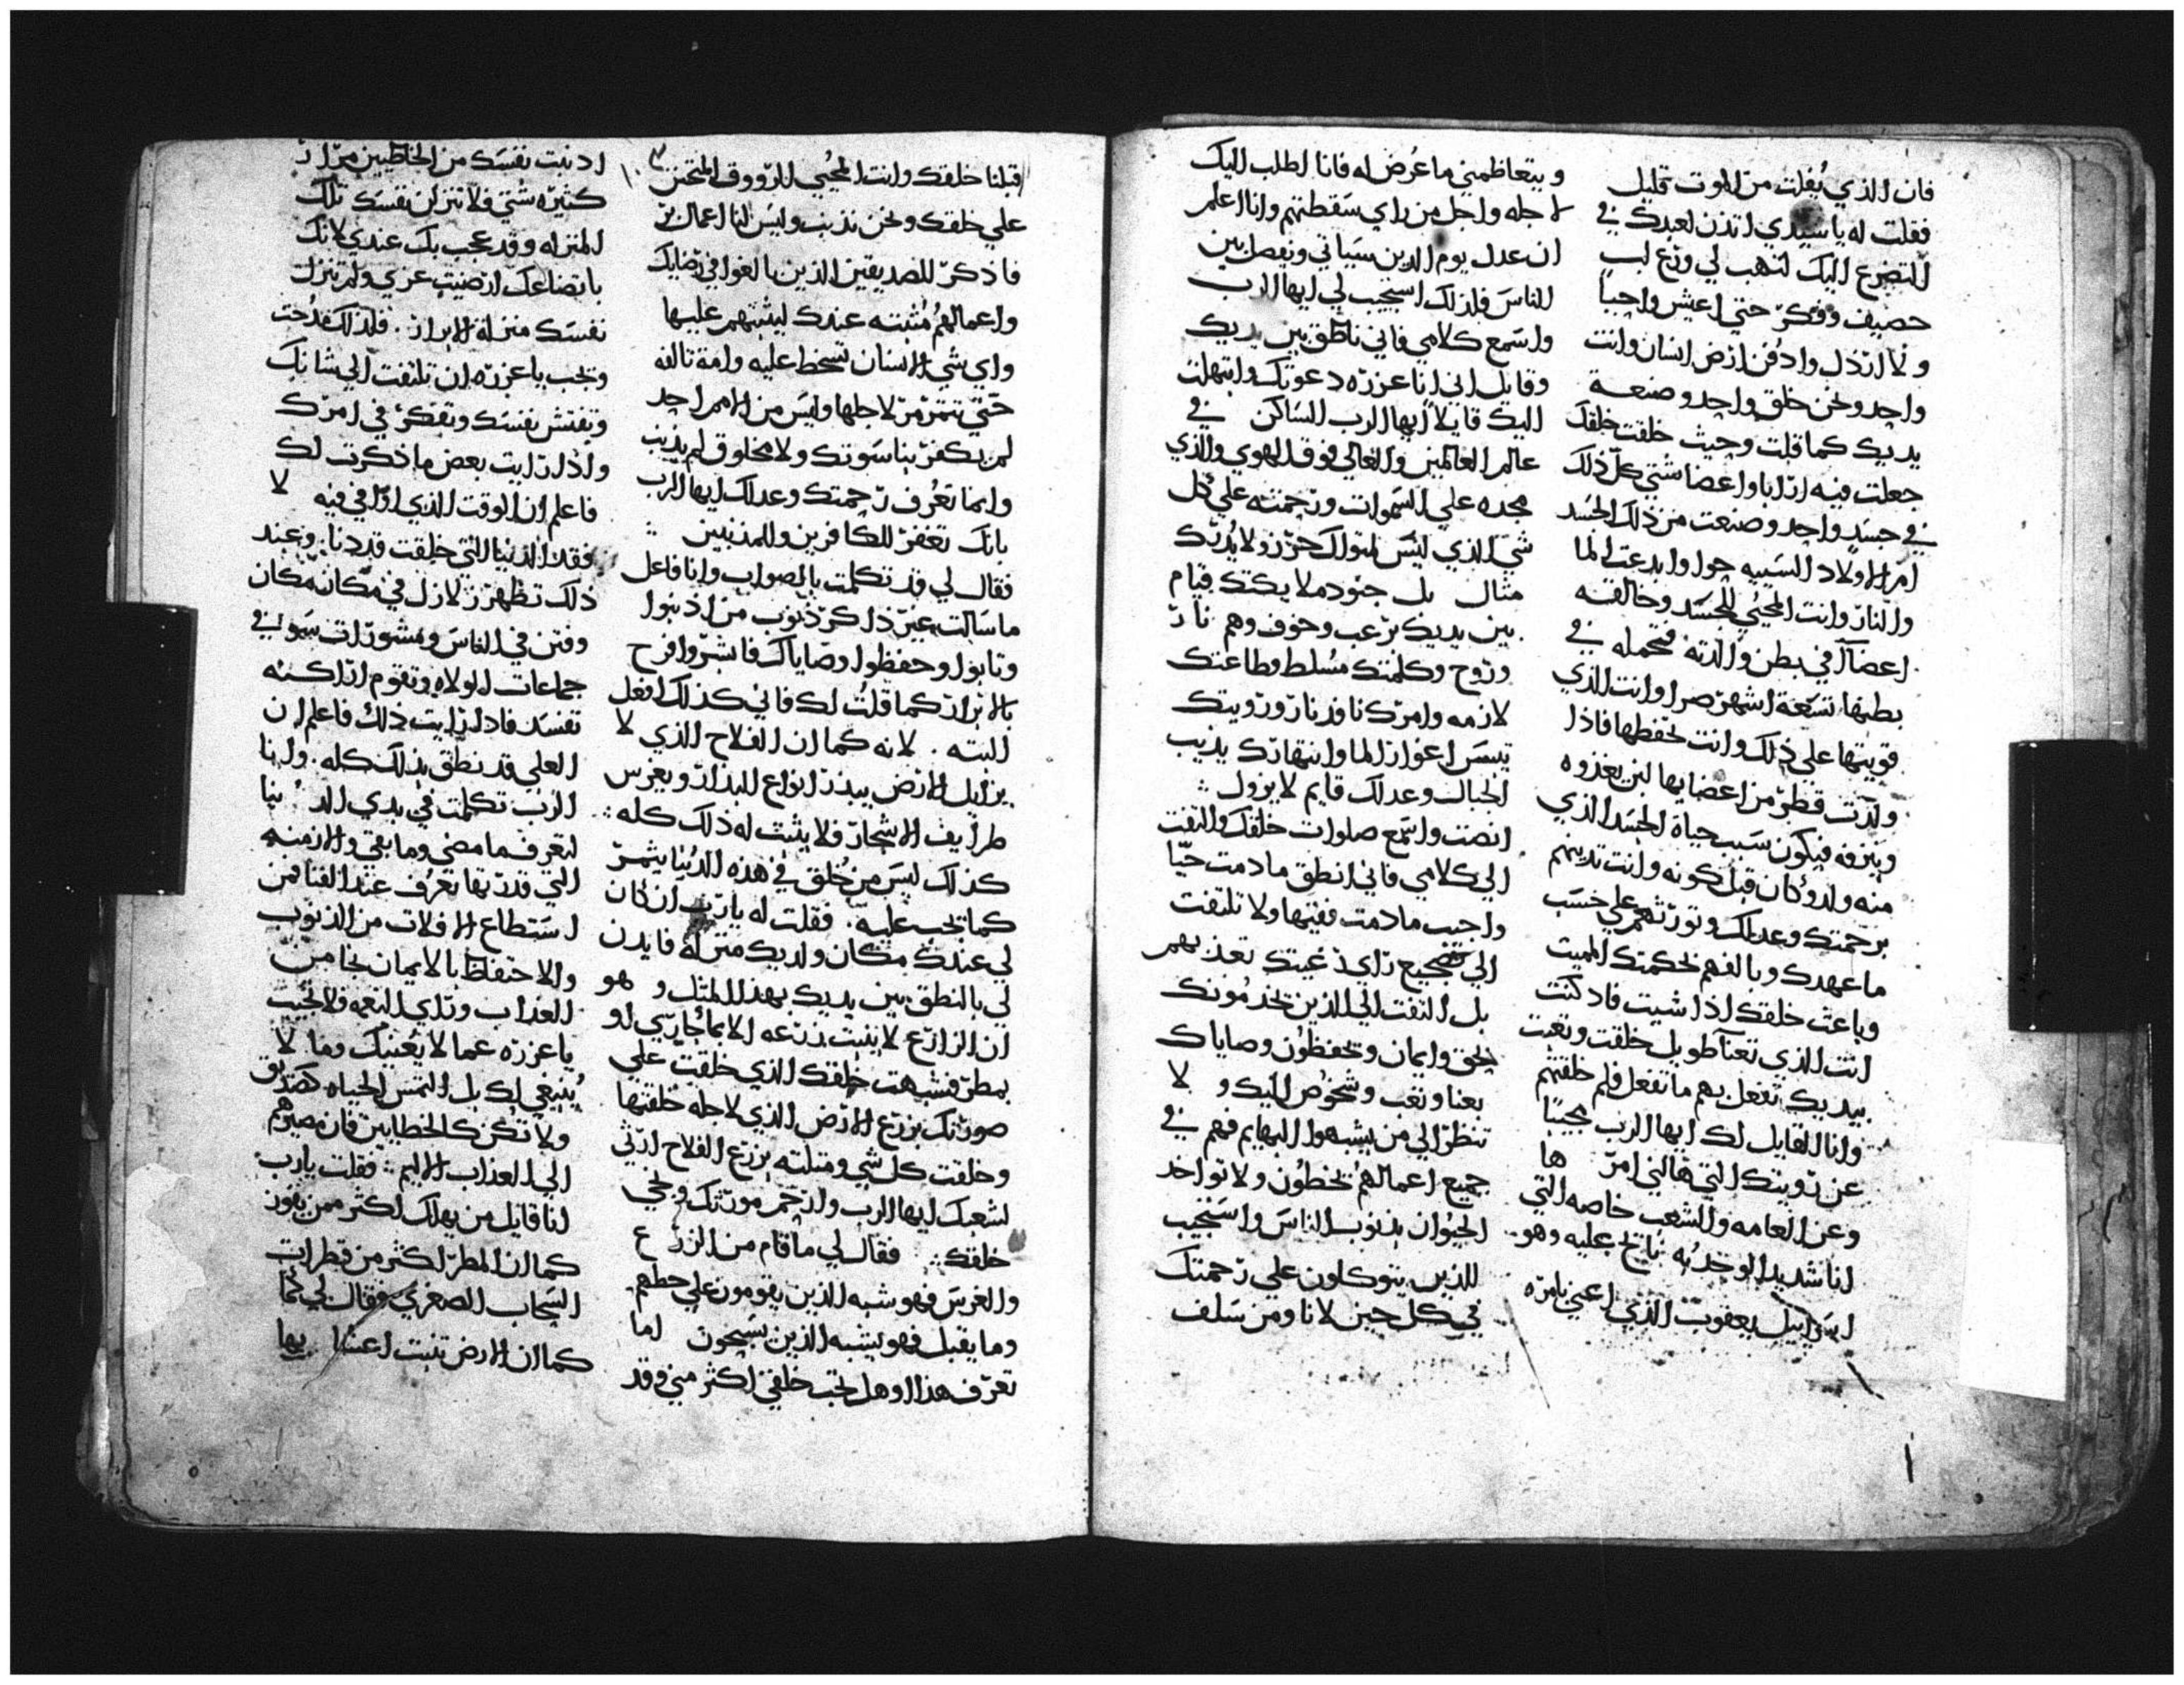 فان الذي يفلت من الموت قليل
فقلت له يا سيدي ائذن لعبدك في
التضرع اليك لتهب لي وزع لب
حصيف وفكر حتي اعيش واحيا
ولا ارذل وادفن ارض انسان وانت
واحد ونحن خلق واحد وصنعة
يديك كما قلت وحيث خلقت خلقك
جعلت فيه ارابا واعضا شتي كل ذلك
في جسد واحد وصنعت من ذلك الجسد
امر الاولاد السبيه حوا وابدعت الما
والنار وانت المحيي للجسد وخالقه
اعضآ في بطن والدته فتحمله في
بطنها تسعة اشهر صرا وانت الذي
قويتها علي ذلك وانت تحفظها فاذا
ولدت قطر من اعضايها لبن يغذوه
وينزفه فيكون سبب حياة الجسد الذي
منه ولد وكان قبل كونه وانت تدينهم
برحمتك وعدلك وتورثهم علي حسب
ما عهدك وبالفهم بحكمتك المميت
وباعث خلقك اذا شيت فاد كنت
انت الذي تعنآ طويل خلقت وتعبت
بيديك تفعل بهم ما تفعل فلم خلقتهم
وانا القايل لك ايها الرب مجيبا
عن رويتك التي هالني امر ها
وعن العامه والشعب خاصه التي
انا شديد الوحد به نايح عليه وهو
اسراييل يعقوب الذي اعني نامره
ويتعاظمني ما عرض له فانا اطلب اليك
لاجله واجل من راي سقطتهم وانا اعلم
ان عدل يوم الدين سياتي ونفصل بين
الناس فلذلك استجيب لي ايها الرب
واسمع كلامي فاني ناطق بين يديك
وقايل اني انا عزره دعوتك وابتهلت
اليك قايلا ايها الرب الساكن في
عالم العالمين والعالي فوق الهوي والذي
مجده علي السموات ورحمته علي كل
شي الذي ليس لقولك حرز ولا يدرك
مثال بل جنوده ملايكتك قيام
بين يديك برعب وخوف وهم نار
وروح وكلمتك مسلط وطاعتك
لازمه وامرك نافذ نار ورويتك
تيبس اغوار الما وانتهارك يذيب
الجبال وعدلك قايم لا يزول
انصت واسمع صلوات خلقك والتفت
الي كلامي فاني انطق ما دمت حيّا
واجب ما دمت فقيها ولا تلتفت
الي تضجيع راي رغبتك تعذبهم
بل التفت الي الذين يخدمونك
بحق وايمان وتحفظون وصاياك
بعنا وتعب وشخوص اليك و لا
تنظر الي من يشبهوا البهايم فهم في
جميع اعمالهم يخطون ولا تواخد
الحيوان بذنوب الناس واستجيب
للذين يتوكلون علي رحمتك
في كل حين لانا ومن سلف
قبلنا خلقك وانت المحيي الرووف المتحنن
علي خلقك ونحن نذنب وليس لنا اعمال بر
فاذكر للصديقين الذين بالغوا في رضايك
واعمالهم مثبته عندك ليثيبهم عليها
واي شي الانسان تسخط عليه وامة تالفه
حتي تتمرمر لاجلها وليس من الامم احد
لم يكفر بناسوتك ولا مخلوق لم يذنب
وانما تعرف رحمتك وعدلك ايها الرب
بانك تغفر للكافرين والمذنبين
فقال لي قد تكلمت بالصواب وانا فاعل
ما سالت غير ذاكر ذنوب من اذنبوا
وتابوا وحفظوا وصاياك فابشر وافرح
بالابرار كما قلت لك فاني كذلك افعل
البته . لانه كما ان الفلاح الذي لا
يزايل الارض يبذر انواع البذار ويغرس
طرايف الاشجار فلا يثبت له ذلك كله
كذلك ليس من خلق في هذه الدنيا يثمر
كما تجب عليه . فقلت له يارب ان كان
لي عندك مكان ولديك منزله فايدن
لي بالنطق بين يديك بهذا المثل و هو
ان الزارع لا ينبت زرعه الا بما جاري او
بمطر فشبهت خلقك الذي خلقت علي
صورتك بزرع الارض الذي لاجله خلقتها
وخلقت كل شي ومثلته بزرع الفلاح ارثي
لشعبك ايها الرب وارحم مورثك ونجي
خلقك فقال لي ما قام من الزر ع
والغرس فهو شبه الذين يقومون علي حطهم
وما يقبل فهو يشبه الذين يسيحون اما
تعرف هذا او هل تحب خلقي اكثر مني وقد
ادنبت نفسك من الخاطيين مرار
كثيره شتي فلا تنزلن نفسك تلك
المنزله وقد عجب بك عندي لانك
باتضاعك ارضيت عزي ولم تنزل
نفسك منزلة الابرار . فلذلك مدحت
وتجب يا عزره ان تلتفت الي شانك
وتفتش نفسك وتفكر في امرك
واذا رايت بعض ما ذكرت لك
فاعلم ان الوقت الذي اوافي فيه لا
فقد الدنيا التي خلقت قد دنا . وعند
ذلك تظهر زلازل في مكان مكان
وفتن في الناس ومشورات سو في
جماعات الولاه وتقوم اراكنه
تفسد فاذا رايت ذلك فاعلم ان
العلي قد نطق بذلك كله . وانا
الرب تكلمت في بدي الد نيا
لتعرف ما مضي وما بقي والازمنه
التي قدر بقا تعرف عند الفنا فمن
استطاع الافلات من الذنوب
والاحتفاظ بالايمان نجا من
العذاب وتلي النعم فلا تجيب
يا عزره عما لا يعنيك وما لا
ينبغي لك بل التمس الحياه كصديق
ولا تكن كالخطايين فان مصيرهم
الي العذاب الاليم . فقلت يارب
انا قايل من يهلك اكثر ممن يفوز
كما ان المطر اكثر من قطرات
السحاب الصغري فقال لي كما
كما ان الارض تنبت اعشا بها